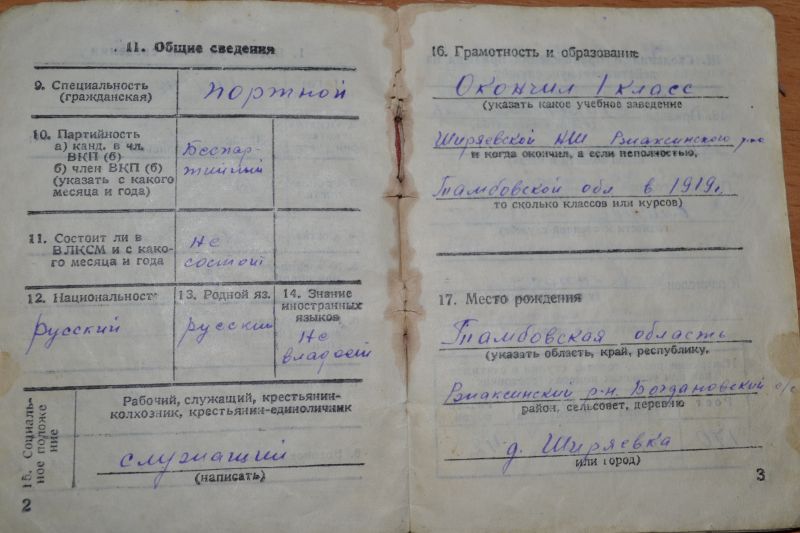 11. Общие сведения
9. Специальность
(гражданская)
портной
10. Партийность
а) канд. в чл.
ВКП (б)
б) член ВКП (б)
(указать с какого
месяца и года)
Беспар-
тийный
11. Состоит ли в
ВЛКСМ и с како-
го месяца и года
Не
состоит
12. Национальность
русский
13. Родной яз.
русский
14. Знание
иностранных
языков
Не
владеет
15. Социаль-
ное положе
ние
Рабочий, служащий, крестьянин-
колхозник, крестьянин-единоличник
служащий
(написать)
2
16. Грамотность и образование
Окончил 1 класс
(указать какое учебное заведение
Ширяевской НШ Ржаксинского р-на
и когда окончил, а если неполностью,
Тамбовской обл в 1919г.
то сколько классов или курсов)
17. Место рождения
Тамбовская область
(указать область, край, республику,
Ржаксинский р-н. Богдановский с/с
район, сельсовет, деревню
д. Ширяевка
или город)
3